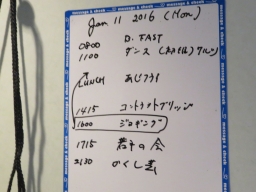 message & check message & check message & check
Jan 11 2016 (Mon.)
0800 B. FAST
1100 ダンス
LUNCH あじフライ
1415 コントラクトブリッジ
1600 ジョギング
1715 若手の会
2130 かくし芸